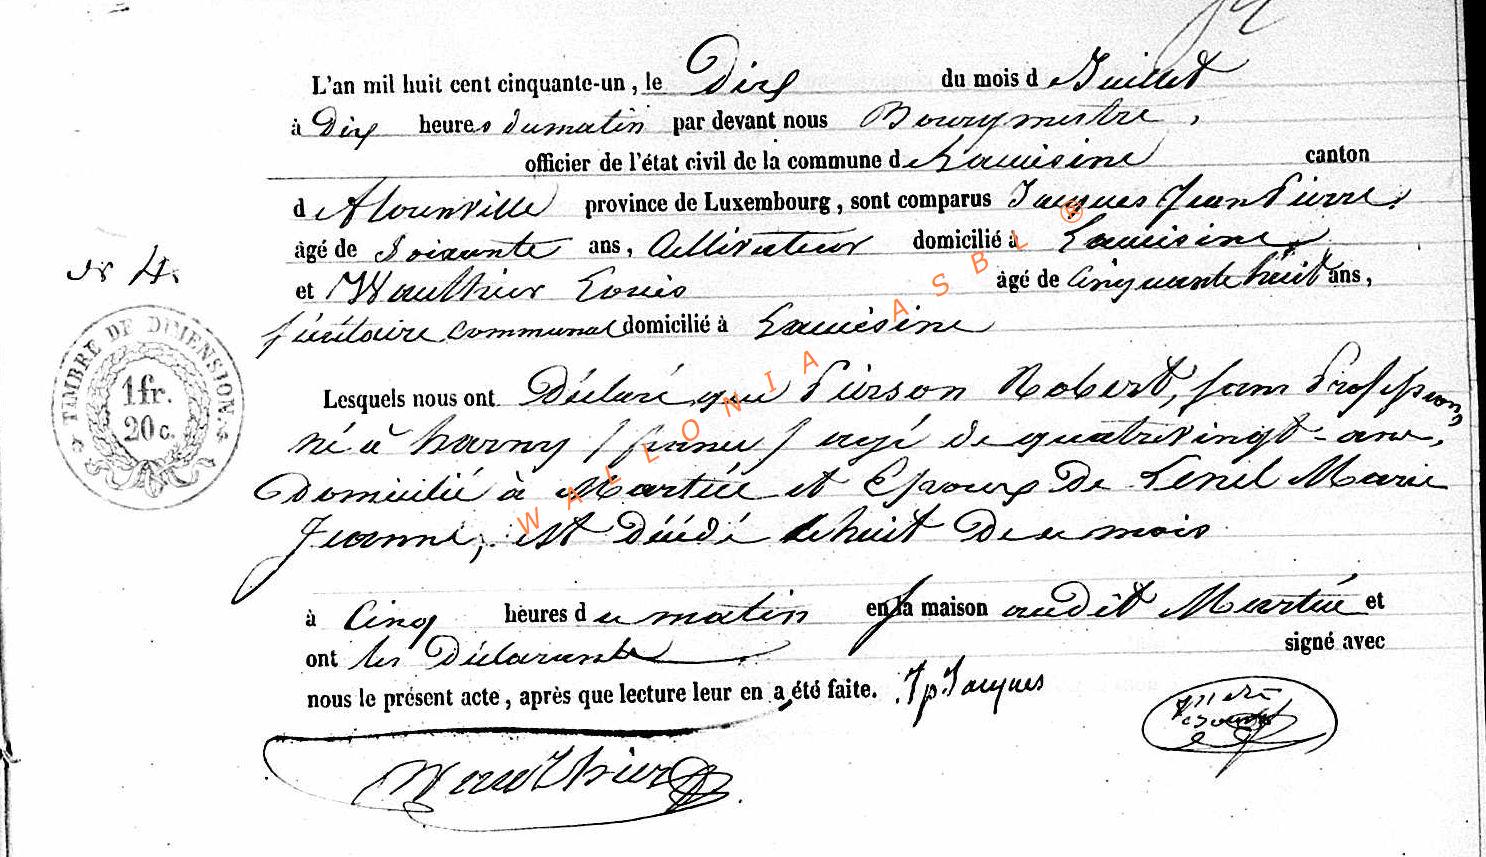 L'an mil huit cent cinquante-un, le Dix du mois d Juillet
à Dix heures du matin par devant nous Bourgmestre,
officier de l'état civil de la commune de Lacuisine canton
d Florenville province de Luxembourg, sont comparus Jacques Jean Pierre,
âgé de Soixante ans, Cultivateur domicilié à Lacuisine,
N° 4.
et Wauthier Louis âgé de Cinquante huit ans,
secrétaire communal domicilié à Lacuisine
TIMBRE DE DIMENSION
1 fr.
20 c.
Lesquels nous ont Déclaré que Pierson Robert, sans Profession,
né à harny (france) agé de quatrevingt-ans,
Domicilié à Martué et Epoux De Lenel Marie
Jeanne, est Décédé le huit De ce mois
à Cinq heures du matin en sa maison audit Martué et
ont les Déclarants signé avec
nous le présent acte, après que lecture leur en a été faite. J p Jacques
Wauthier
WALLONIA ASBL ®